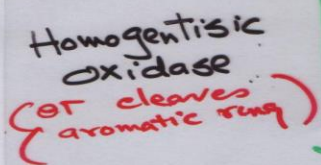 Homogentisic
oxidase
(or cleaves
aromatic ring)